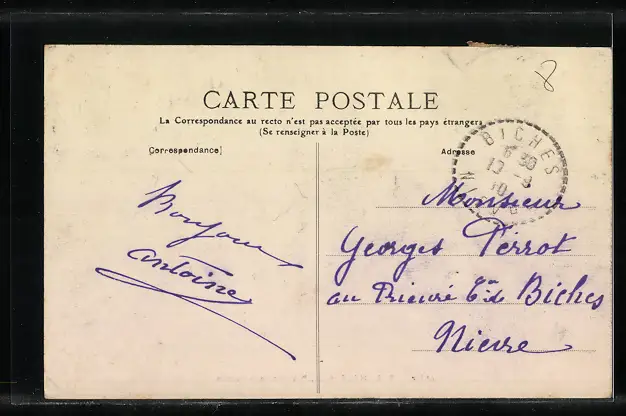 8
CARTE POSTALE
La Correspondance au recto n'est pas acceptée par tous les pays étrangers
(Se renseigner à la Poste)
Correspondance
Adresse
BICHES
Bonjour
Antoine
Monsieur
Georges Perrot
au Prieuré Cne de Biches
Nièvre